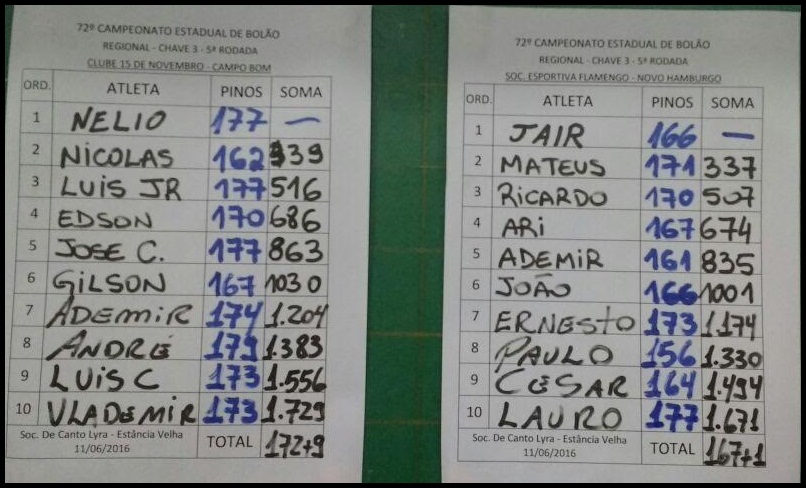 72º CAMPEONATO ESTADUAL DE BOLÃO
REGIONAL - CHAVE 3 - 5ª RODADA
CLUBE 15 DE NOVEMBRO - CAMPO BOM
ORD. ATLETA PINOS SOMA
1 NELIO 177 —
2 NICOLAS 162 339
3 LUIS JR 177 516
4 EDSON 170 686
5 JOSE C. 177 863
6 GILSON 167 1030
7 ADEMIR 174 1.204
8 ANDRÉ 179 1.383
9 LUIS C 173 1.556
10 VLADEMIR 173 1.729
Soc. De Canto Lyra - Estância Velha
11/06/2016
TOTAL 172+9
72º CAMPEONATO ESTADUAL DE BOLÃO
REGIONAL - CHAVE 3 - 5ª RODADA
SOC. ESPORTIVA FLAMENGO - NOVO HAMBURGO
ORD. ATLETA PINOS SOMA
1 JAIR 166 —
2 MATEUS 171 337
3 RICARDO 170 507
4 ARI 167 674
5 ADEMIR 161 835
6 JOÃO 166 1001
7 ERNESTO 173 1.174
8 PAULO 156 1.330
9 CESAR 164 1.494
10 LAURO 177 1.671
Soc. De Canto Lyra - Estância Velha
11/06/2016
TOTAL 167+1